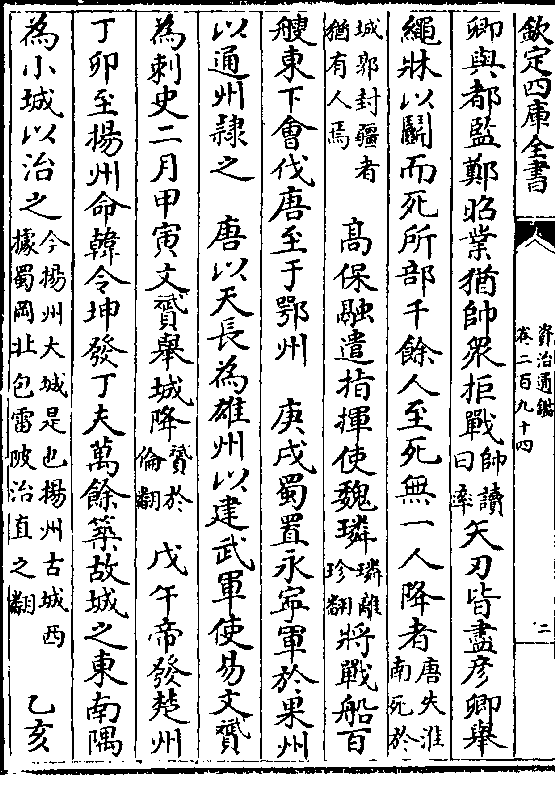 欽定四庫全書
資治通鑑
卷二百九十四
二
卿與都監鄭昭業猶帥衆拒戰帥讀曰率矢刃皆盡彦卿舉
繩牀以鬬而死所部千餘人至死無一人降者唐失淮南死於
城郭封疆者猶有人焉 高保融遣指揮使魏璘璘離珍翻將戰船百
艘東下會伐唐至于鄂州 庚戌蜀置永寜軍於果州
以通州隸之 唐以天長為雄州以建武軍使易文贇
為刺史二月甲寅文贇舉城降贇於倫翻 戊午帝發楚州
丁卯至揚州命韓令坤發丁夫萬餘築故城之東南隅
為小城以治之今揚州大城是也揚州古城西據蜀岡北包雷陂治直之翻 乙亥